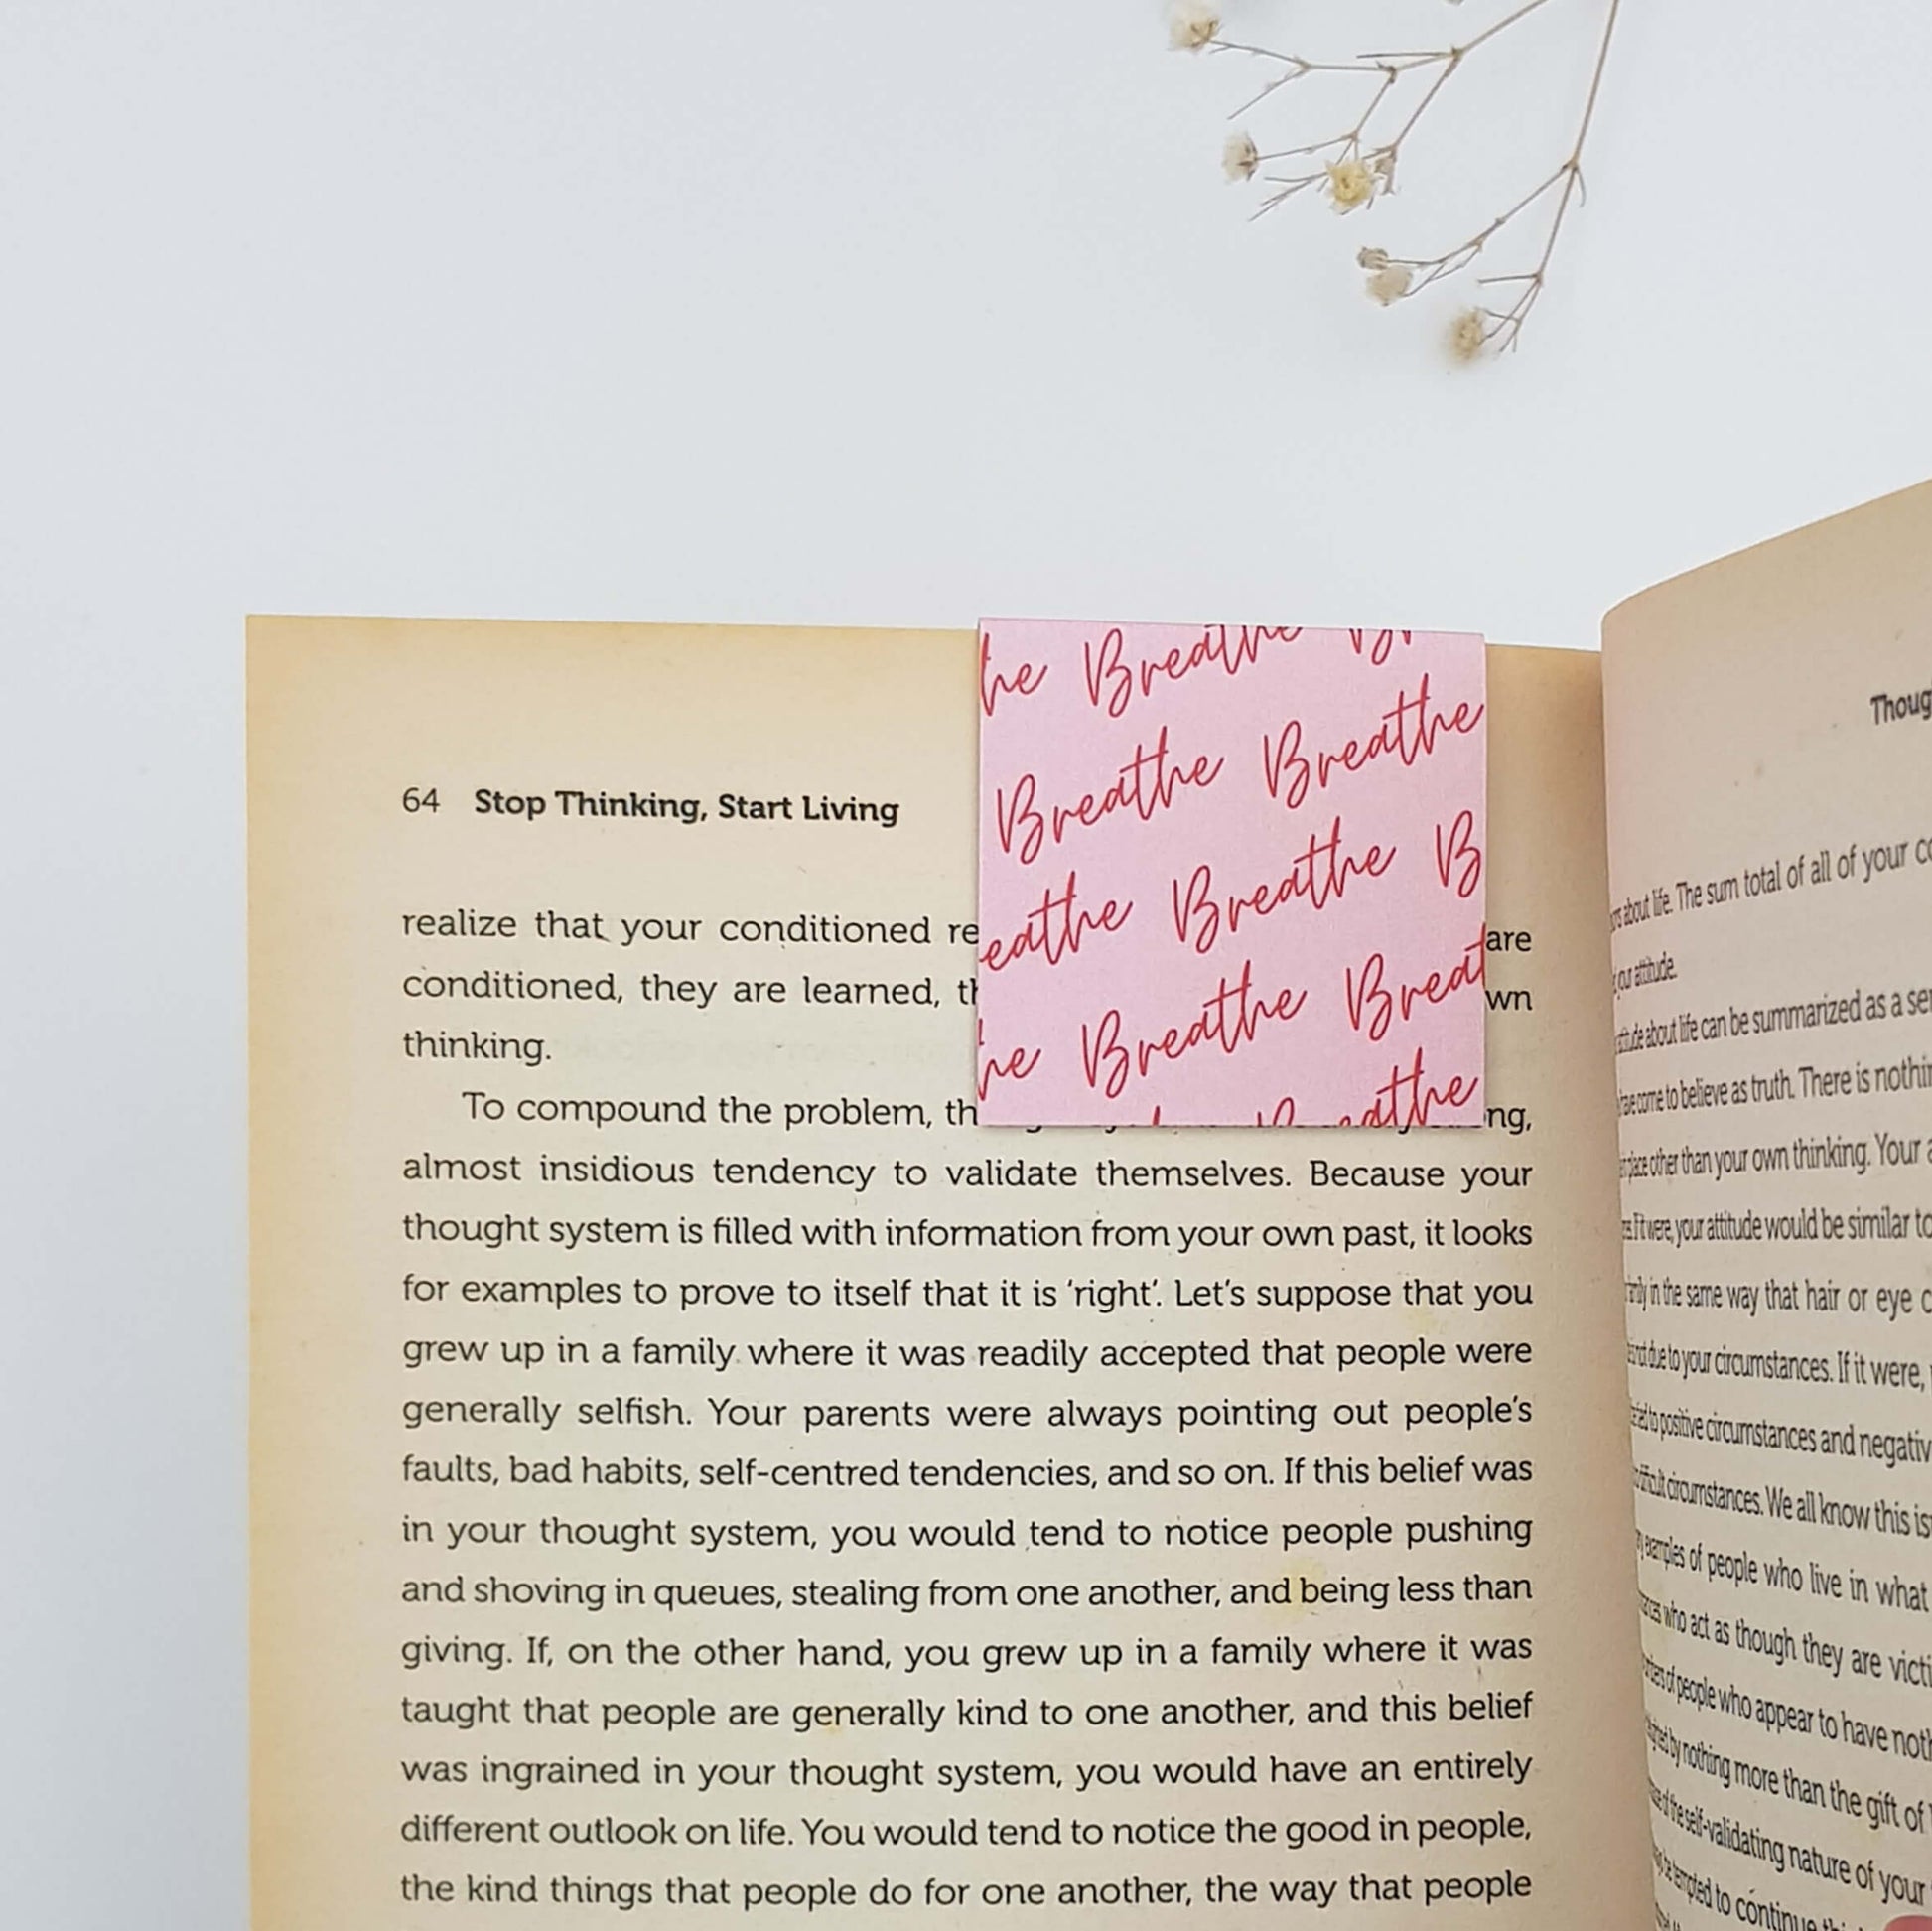 64 Stop Thinking, Start Living
realize that your conditioned re
are
conditioned, they are learned, th
wn
thinking.
To compound the problem, th
ng,
almost insidious tendency to validate themselves. Because your
thought system is filled with information from your own past, it looks
for examples to prove to itself that it is ‘right’. Let’s suppose that you
grew up in a family where it was readily accepted that people were
generally selfish. Your parents were always pointing out people’s
faults, bad habits, self-centred tendencies, and so on. If this belief was
in your thought system, you would tend to notice people pushing
and shoving in queues, stealing from one another, and being less than
giving. If, on the other hand, you grew up in a family where it was
taught that people are generally kind to one another, and this belief
was ingrained in your thought system, you would have an entirely
different outlook on life. You would tend to notice the good in people,
the kind things that people do for one another, the way that people
he Breathe Br
Breathe Breathe
eathe Breathe B
he Breathe Breat
Breathe
Thoug
about life. The sum total of all of your co
your attitude.
about life can be summarized as a se
have come to believe as truth. There is nothin
place other than your own thinking. Your a
If it were, your attitude would be similar to
in the same way that hair or eye c
not due to your circumstances. If it were,
to positive circumstances and negativ
difficult circumstances. We all know this is
examples of people who live in what
who act as though they are victi
of people who appear to have noth
by nothing more than the gift of
of the self-validating nature of your
tempted to continue thi